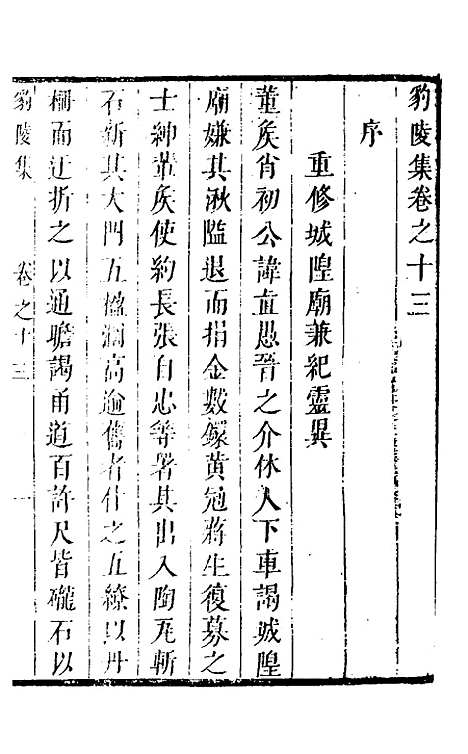 豹陵集卷之十三
序
重修城隍廟兼紀靈異
董矦肖初公諱直愚晉之介休人下車謁城隍
廟嫌其湫隘退而捐金數鐶黃冠蔣生復募之
士紳董矦使約長張自忠等署其出入陶瓦斬
石新其大門五楹濶高逾舊者什之五繚以丹
欄而迂折之以通瞻謁甬道百許尺皆礲石以
豹陵集
卷之十三
一